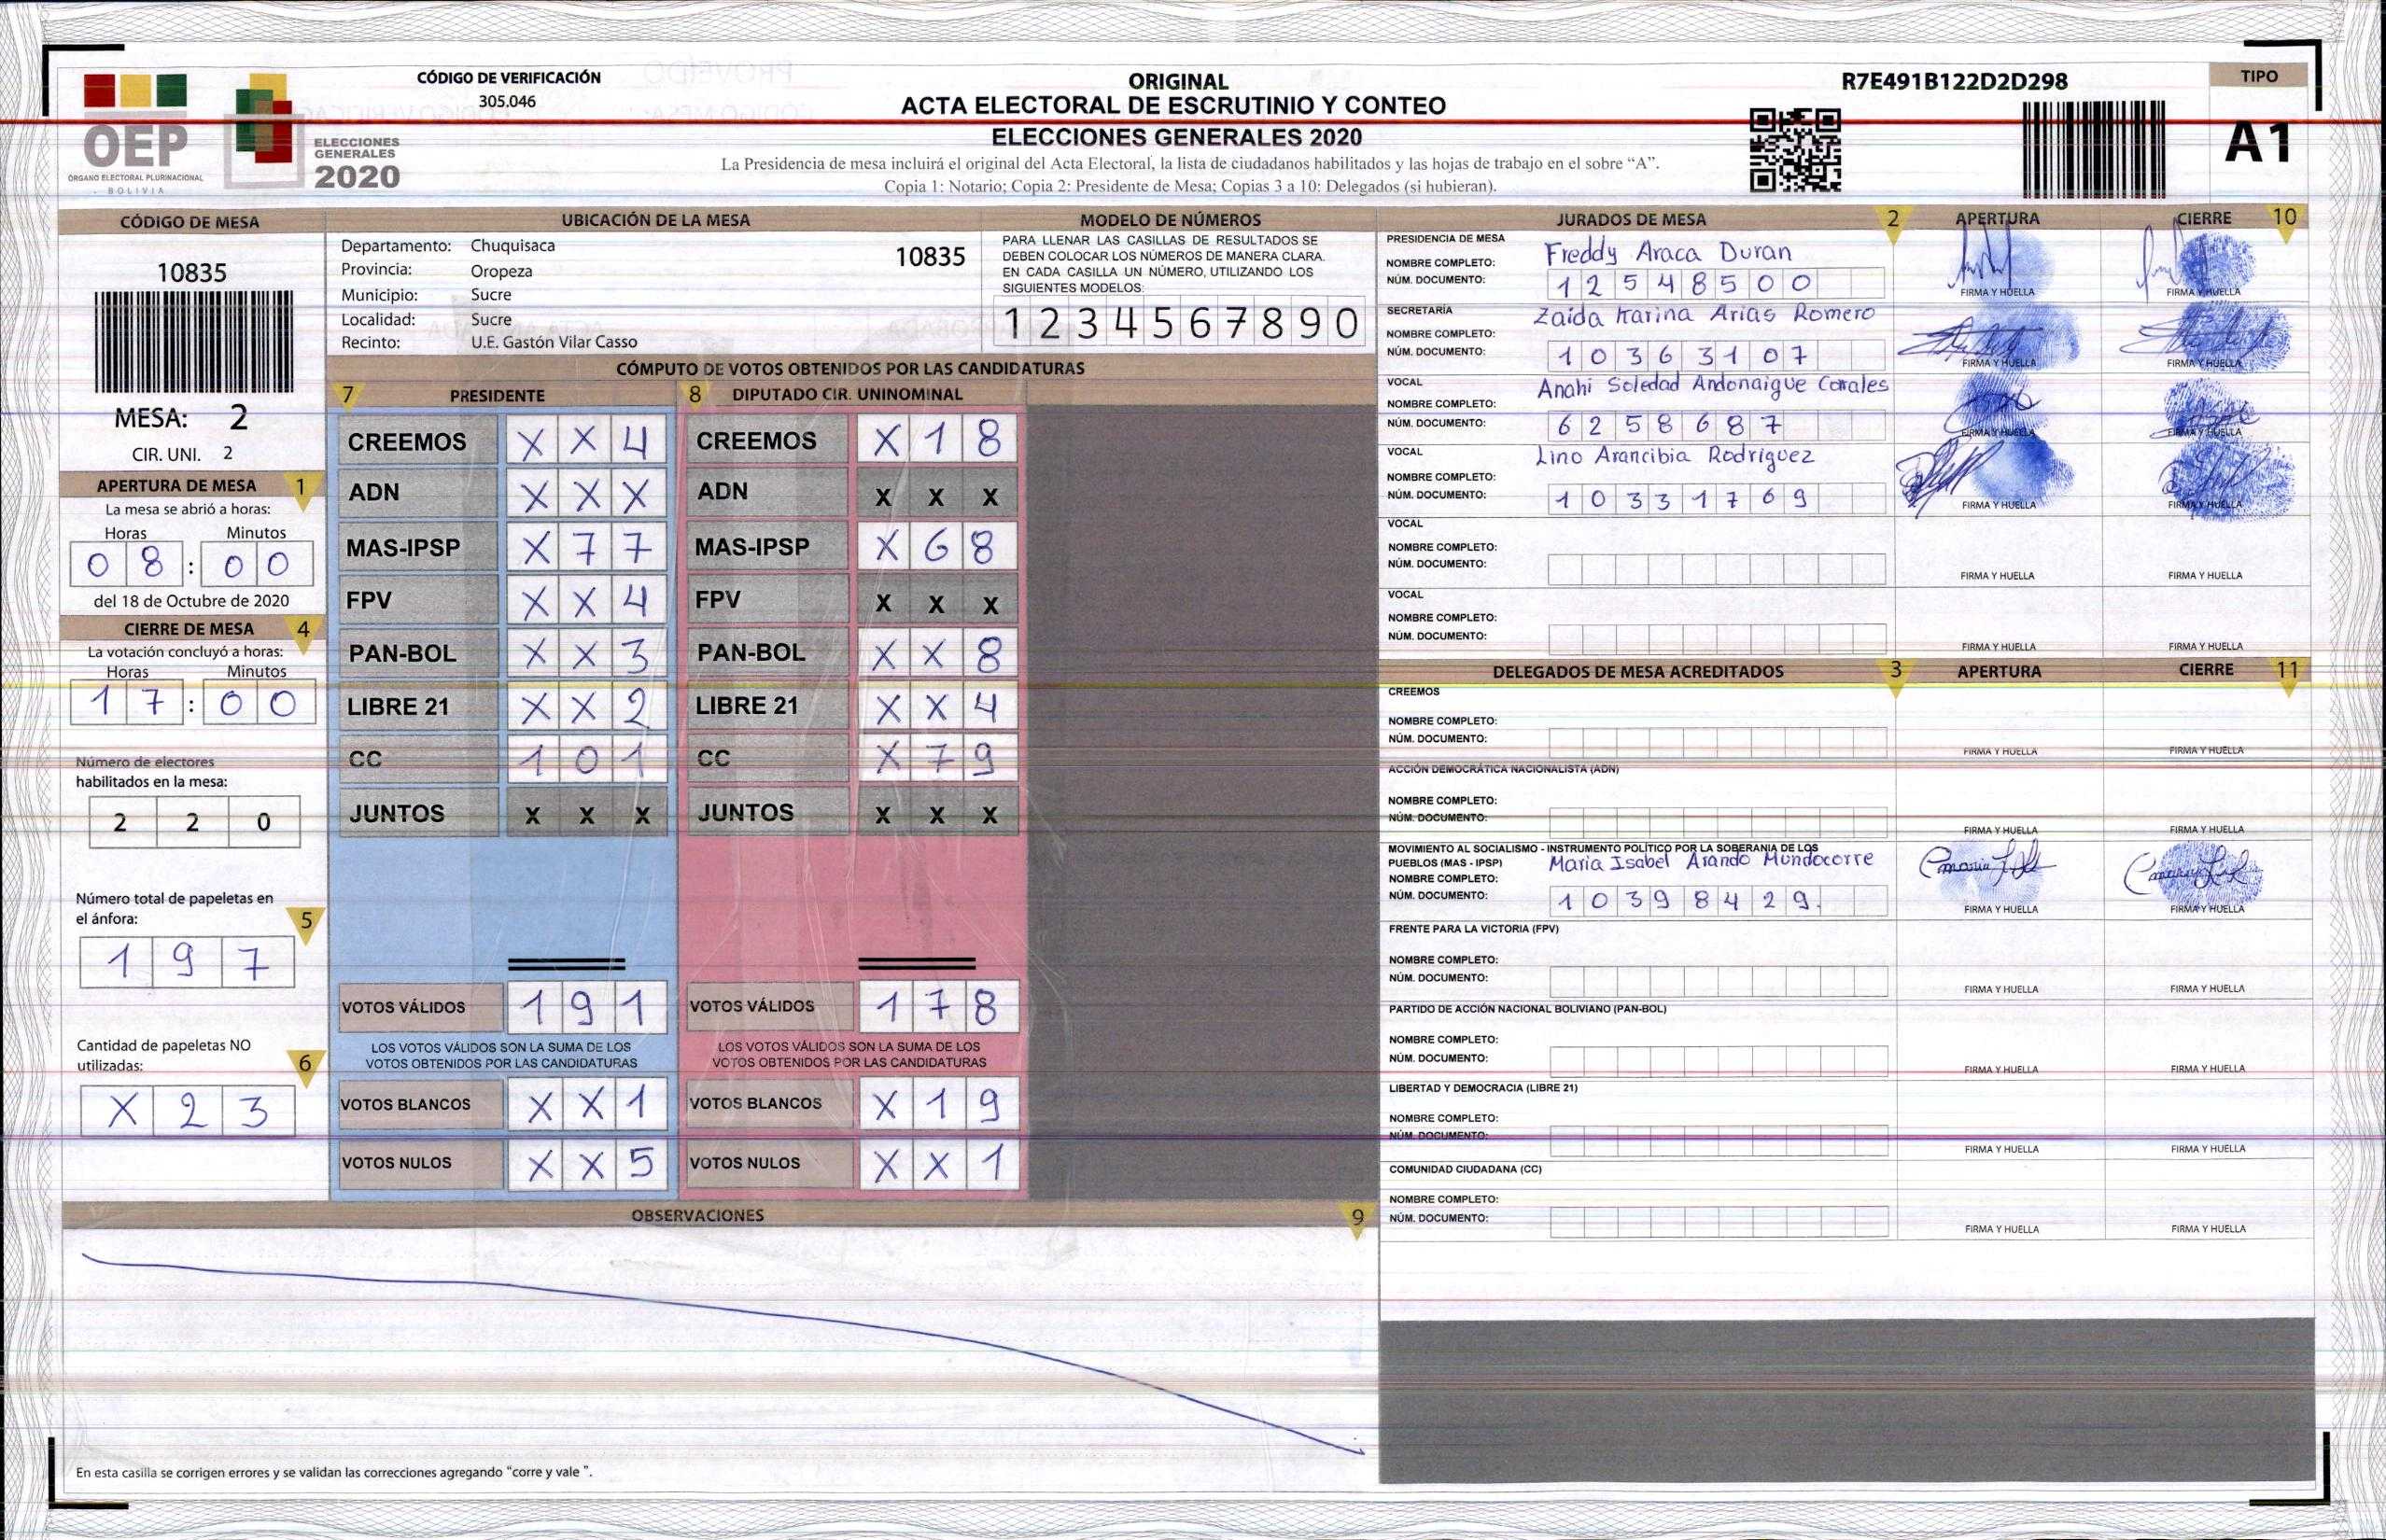 CÓDIGO DE VERIFICACIÓN
305.046
OEP
ÓRGANO ELECTORAL PLURINACIONAL
BOLIVIA
ELECCIONES
GENERALES
2020
ORIGINAL
ACTA ELECTORAL DE ESCRUTINIO Y CONTEO
ELECCIONES GENERALES 2020
La Presidencia de mesa incluirá el original del Acta Electoral, la lista de ciudadanos habilitados y las hojas de trabajo en el sobre “A”.
Copia 1: Notario; Copia 2: Presidente de Mesa; Copias 3 a 10: Delegados (si hubieran).
R7E491B122D2D298
TIPO
A1
CÓDIGO DE MESA
10835
MESA: 2
CIR. UNI. 2
APERTURA DE MESA 1
La mesa se abrió a horas:
Horas Minutos
0 8 : 0 0
del 18 de Octubre de 2020
CIERRE DE MESA 4
La votación concluyó a horas:
Horas Minutos
1 7 : 0 0
Número de electores
habilitados en la mesa:
2 2 0
Número total de papeletas en
el ánfora: 5
1 9 7
Cantidad de papeletas NO
utilizadas: 6
X 2 3
UBICACIÓN DE LA MESA
Departamento: Chuquisaca
10835
Provincia: Oropeza
Municipio: Sucre
Localidad: Sucre
Recinto: U.E. Gastón Vilar Casso
MODELO DE NÚMEROS
PARA LLENAR LAS CASILLAS DE RESULTADOS SE
DEBEN COLOCAR LOS NÚMEROS DE MANERA CLARA.
EN CADA CASILLA UN NÚMERO, UTILIZANDO LOS
SIGUIENTES MODELOS:
1 2 3 4 5 6 7 8 9 0
CÓMPUTO DE VOTOS OBTENIDOS POR LAS CANDIDATURAS
7 PRESIDENTE
CREEMOS X X 4
ADN X X X
MAS-IPSP X 7 7
FPV X X 4
PAN-BOL X X 3
LIBRE 21 X X 2
CC 1 0 1
JUNTOS X X X
VOTOS VÁLIDOS 1 9 1
LOS VOTOS VÁLIDOS SON LA SUMA DE LOS
VOTOS OBTENIDOS POR LAS CANDIDATURAS
VOTOS BLANCOS X X 1
VOTOS NULOS X X 5
8 DIPUTADO CIR. UNINOMINAL
CREEMOS X 1 8
ADN X X X
MAS-IPSP X 6 8
FPV X X X
PAN-BOL X X 8
LIBRE 21 X X 4
CC X 7 9
JUNTOS X X X
VOTOS VÁLIDOS 1 7 8
LOS VOTOS VÁLIDOS SON LA SUMA DE LOS
VOTOS OBTENIDOS POR LAS CANDIDATURAS
VOTOS BLANCOS X 1 9
VOTOS NULOS X X 1
OBSERVACIONES 9
En esta casilla se corrigen errores y se validan las correcciones agregando “corre y vale ”.
JURADOS DE MESA 2 APERTURA CIERRE 10
PRESIDENCIA DE MESA
NOMBRE COMPLETO: Freddy Araca Duran
NÚM. DOCUMENTO: 1 2 5 4 8 5 0 0
FIRMA Y HUELLA FIRMA Y HUELLA
SECRETARÍA
NOMBRE COMPLETO: Zaida Karina Arias Romero
NÚM. DOCUMENTO: 1 0 3 6 3 1 0 7
FIRMA Y HUELLA FIRMA Y HUELLA
VOCAL
NOMBRE COMPLETO: Anahi Soledad Andonaigue Corrales
NÚM. DOCUMENTO: 6 2 5 8 6 8 7
FIRMA Y HUELLA FIRMA Y HUELLA
VOCAL
NOMBRE COMPLETO: Lino Arancibia Rodriguez
NÚM. DOCUMENTO: 1 0 3 3 1 7 6 9
FIRMA Y HUELLA FIRMA Y HUELLA
VOCAL
NOMBRE COMPLETO:
NÚM. DOCUMENTO:
FIRMA Y HUELLA FIRMA Y HUELLA
VOCAL
NOMBRE COMPLETO:
NÚM. DOCUMENTO:
FIRMA Y HUELLA FIRMA Y HUELLA
DELEGADOS DE MESA ACREDITADOS 3 APERTURA CIERRE 11
CREEMOS
NOMBRE COMPLETO:
NÚM. DOCUMENTO:
FIRMA Y HUELLA FIRMA Y HUELLA
ACCIÓN DEMOCRÁTICA NACIONALISTA (ADN)
NOMBRE COMPLETO:
NÚM. DOCUMENTO:
FIRMA Y HUELLA FIRMA Y HUELLA
MOVIMIENTO AL SOCIALISMO - INSTRUMENTO POLÍTICO POR LA SOBERANIA DE LOS
PUEBLOS (MAS - IPSP) Maria Isabel Arando Mundocorre
NOMBRE COMPLETO:
NÚM. DOCUMENTO: 1 0 3 9 8 4 2 9.
FIRMA Y HUELLA FIRMA Y HUELLA
FRENTE PARA LA VICTORIA (FPV)
NOMBRE COMPLETO:
NÚM. DOCUMENTO:
FIRMA Y HUELLA FIRMA Y HUELLA
PARTIDO DE ACCIÓN NACIONAL BOLIVIANO (PAN-BOL)
NOMBRE COMPLETO:
NÚM. DOCUMENTO:
FIRMA Y HUELLA FIRMA Y HUELLA
LIBERTAD Y DEMOCRACIA (LIBRE 21)
NOMBRE COMPLETO:
NÚM. DOCUMENTO:
FIRMA Y HUELLA FIRMA Y HUELLA
COMUNIDAD CIUDADANA (CC)
NOMBRE COMPLETO:
NÚM. DOCUMENTO:
FIRMA Y HUELLA FIRMA Y HUELLA